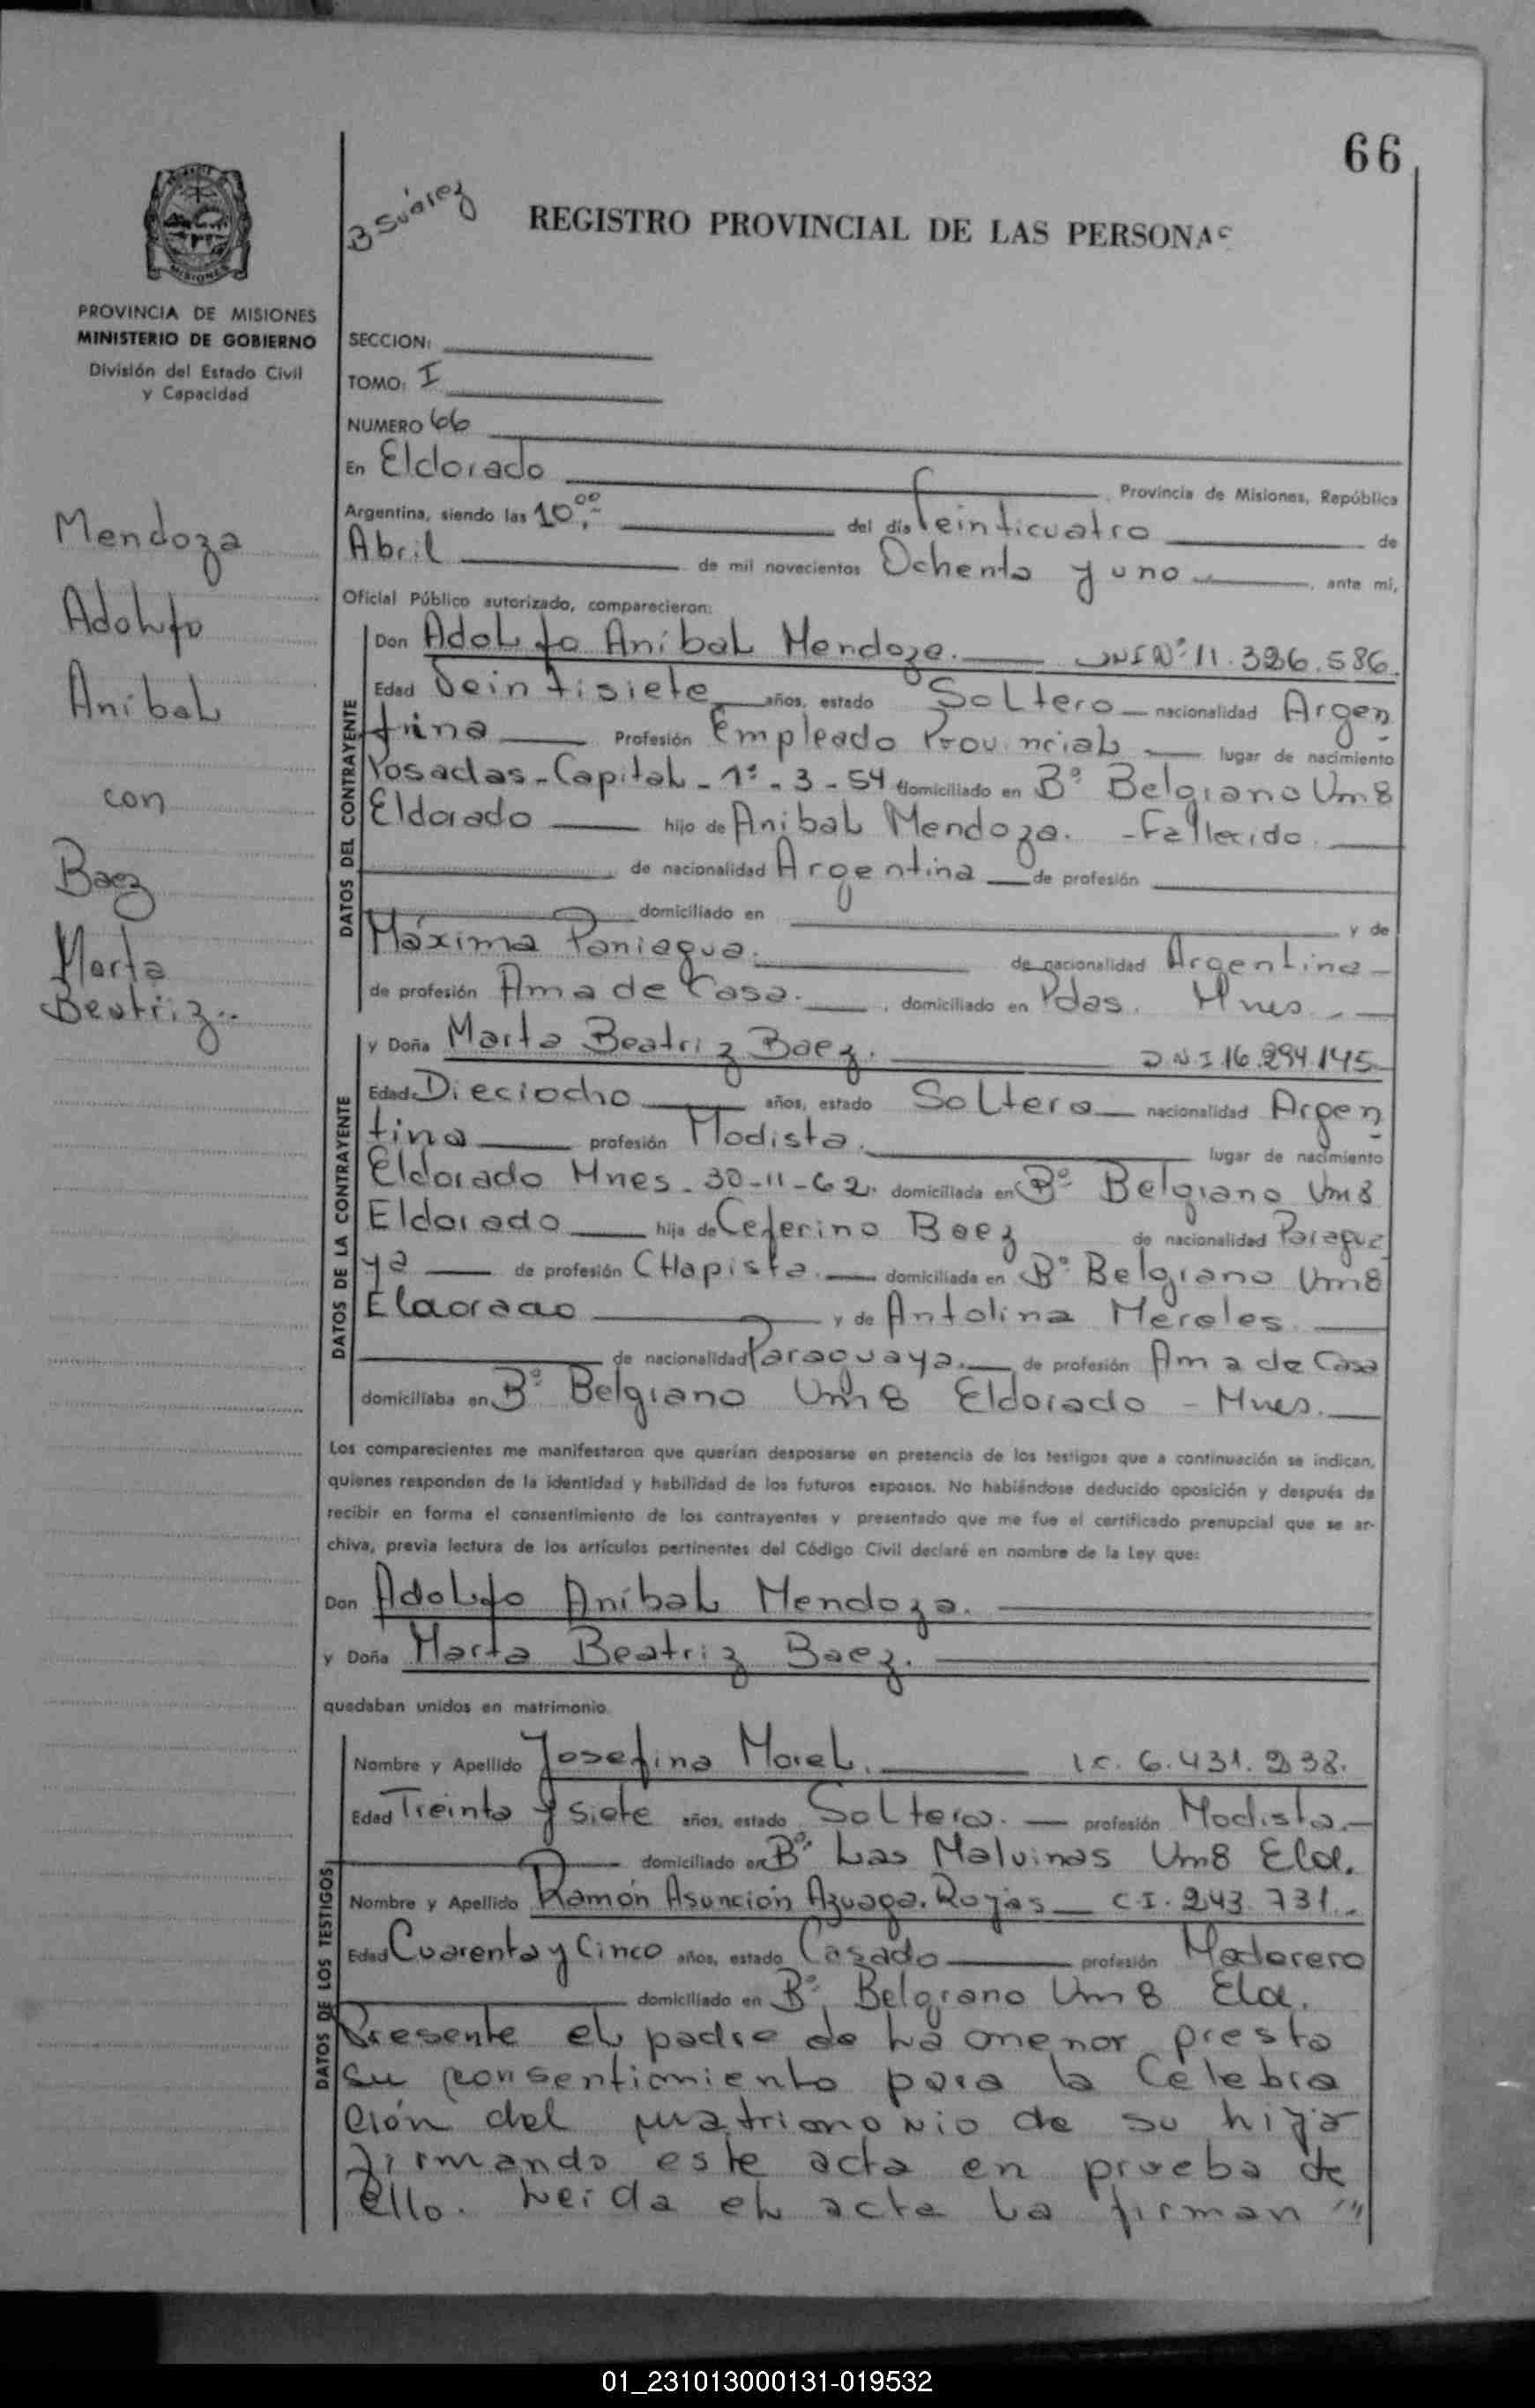 66
B Suárez
REGISTRO PROVINCIAL DE LAS PERSONAS
MISIONES
PROVINCIA DE MISIONES
MINISTERIO DE GOBIERNO
División del Estado Civil
y Capacidad
Mendoza
Adolfo
Aníbal
con
Baez
Marta
Beatriz..
SECCION:
TOMO: I
NUMERO 66
En Eldorado Provincia de Misiones, República
Argentina, siendo las 10,00 del día Veinticuatro de
Abril de mil novecientos Ochenta y uno , ante mi,
Oficial Público autorizado, comparecieron:
DATOS DEL CONTRAYENTE
Don Adolfo Aníbal Mendoza. DNI Nº 11.326.586.
Edad Veintisiete años, estado Soltero nacionalidad Argen
tina Profesión Empleado Provincial lugar de nacimiento
Posadas-Capital-1º-3-54 domiciliado en Bº Belgrano Km8
Eldorado hijo de Anibal Mendoza. -Fallecido.
, de nacionalidad Argentina de profesión
domiciliado en y de
Máxima Paniagua. de nacionalidad Argentina
de profesión Ama de Casa. , domiciliado en Pdas. Mnes.
DATOS DE LA CONTRAYENTE
y Doña Marta Beatriz Baez. D.N.I.16.294.145
Edad Dieciocho años, estado Soltera nacionalidad Argen
tina profesión Modista. lugar de nacimiento
Eldorado Mnes. 30-11-62. domiciliada en Bº Belgrano Km8
Eldorado hija de Ceferino Baez de nacionalidad Paragua
ya de profesión CHapista. domiciliada en Bº Belgrano Km8
Eldorado y de Antolina Mereles.
de nacionalidad Paraguaya. de profesión Ama de Casa
domiciliaba en Bº Belgrano Km8 Eldorado - Mnes.
Los comparecientes me manifestaron que querían desposarse en presencia de los testigos que a continuación se indican,
quienes responden de la identidad y habilidad de los futuros esposos. No habiéndose deducido oposición y después de
recibir en forma el consentimiento de los contrayentes y presentado que me fue el certificado prenupcial que se ar-
chiva, previa lectura de los artículos pertinentes del Código Civil declaré en nombre de la Ley que:
Don Adolfo Aníbal Mendoza.
y Doña Marta Beatriz Baez.
quedaban unidos en matrimonio.
DATOS DE LOS TESTIGOS
Nombre y Apellido Josefina Morel. L.C. 6.431.238.
Edad Treinta y siete años, estado Soltera. profesión Modista.
domiciliado en Bº Las Malvinas Km8 Eld.
Nombre y Apellido Ramón Asunción Azuaga. Rojas C.I. 243.731.
Edad Cuarenta y Cinco años, estado Casado profesión Maderero
domiciliado en Bº Belgrano Km 8 Eld.
Presente el padre de la menor presta
su consentimiento para la Celebra
ción del matrimonio de su hija
firmando este acta en prueba de
ello. Leida el acta la firman "
01_231013000131-019532